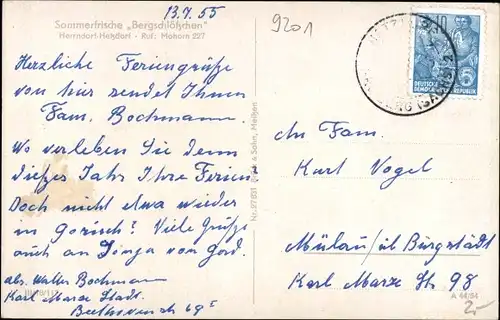 13.7.55
9201
Sommerfrische „Bergschlößchen"
Herrndorf-Hetzdorf · Ruf: Mohorn 227
Herzliche Feriengrüße
von hier sendet Ihnen
Fam. Bochmann.
Wo verleben Sie denn
dießes Jahr Ihre Ferien?
Doch nicht etwa wieder
in Gorisch? Viele Grüße
auch an Sonja von Gerd.
abs. Walter Bochmann
Karl Marx Stadt.
Beethovenstr 69
10
5
DEUTSCHE
DEMOKRATISCHE REPUBLIK
An Fam.
Kurt Vogel
Mülau/ü Burgstädt
Karl Marx St 98
& Sohn, Meißen
A 44/54
2,-